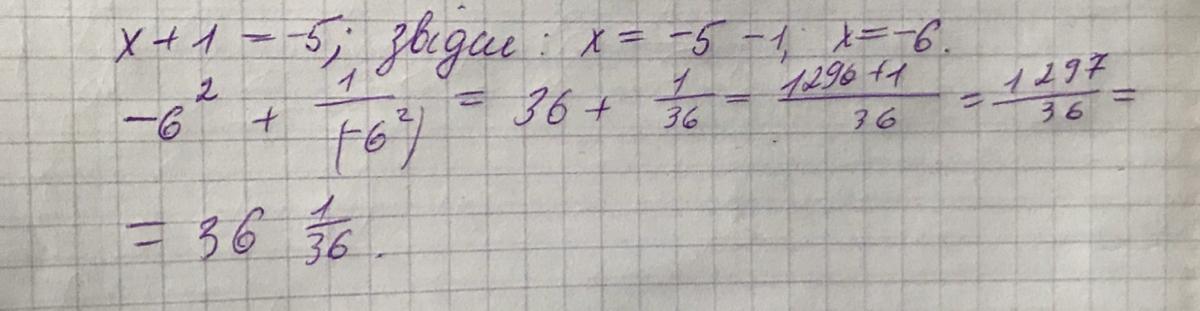 x + 1 = -5; звідси: x = -5 - 1; x = -6.
-6² + 1/(-6²) = 36 + 1/36 = 1296+1/36 = 1297/36 =
= 36 1/36.